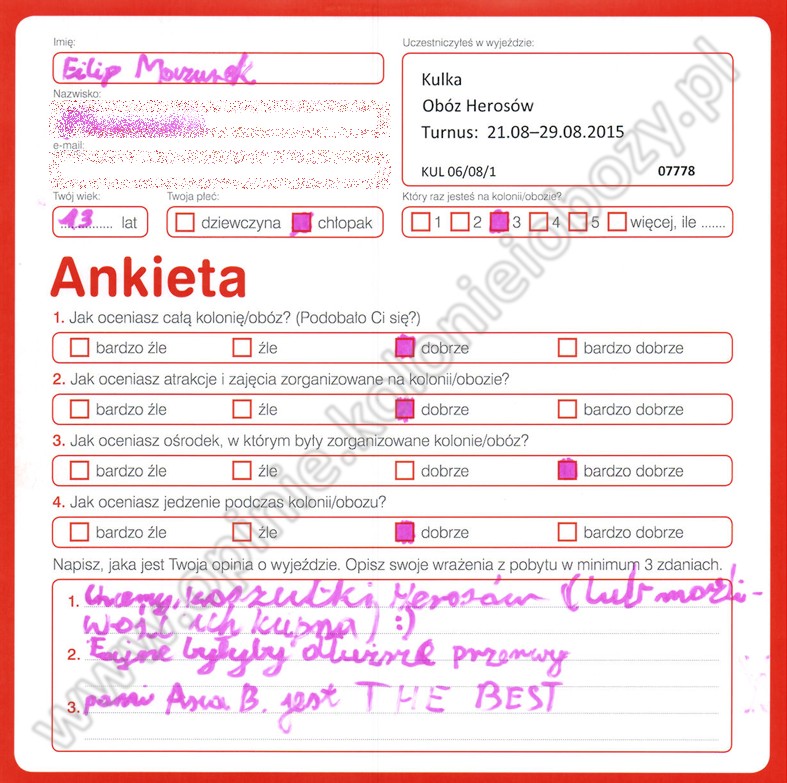 Imię:
Filip
Uczestniczyłeś w wyjeździe:
Kulka
Obóz Herosów
Turnus: 21.08–29.08.2015
KUL 06/08/1 07778
Nazwisko:
e-mail:
Twój wiek:
13 lat
Twoja płeć:
dziewczyna chłopak
Który raz jesteś na kolonii/obozie?
1 2 3 4 5 więcej, ile .......
Ankieta
1. Jak oceniasz całą kolonię/obóz? (Podobało Ci się?)
bardzo źle źle dobrze bardzo dobrze
2. Jak oceniasz atrakcje i zajęcia zorganizowane na kolonii/obozie?
bardzo źle źle dobrze bardzo dobrze
3. Jak oceniasz ośrodek, w którym były zorganizowane kolonie/obóz?
bardzo źle źle dobrze bardzo dobrze
4. Jak oceniasz jedzenie podczas kolonii/obozu?
bardzo źle źle dobrze bardzo dobrze
Napisz, jaka jest Twoja opinia o wyjeździe. Opisz swoje wrażenia z pobytu w minimum 3 zdaniach.
1. Chcemy koszulki Herosów (lub możli-
wość ich kupna) :)
2. były by przerwy
3. pani Asia B. jest THE BEST
www.opinie.kolonieiobozy.pl